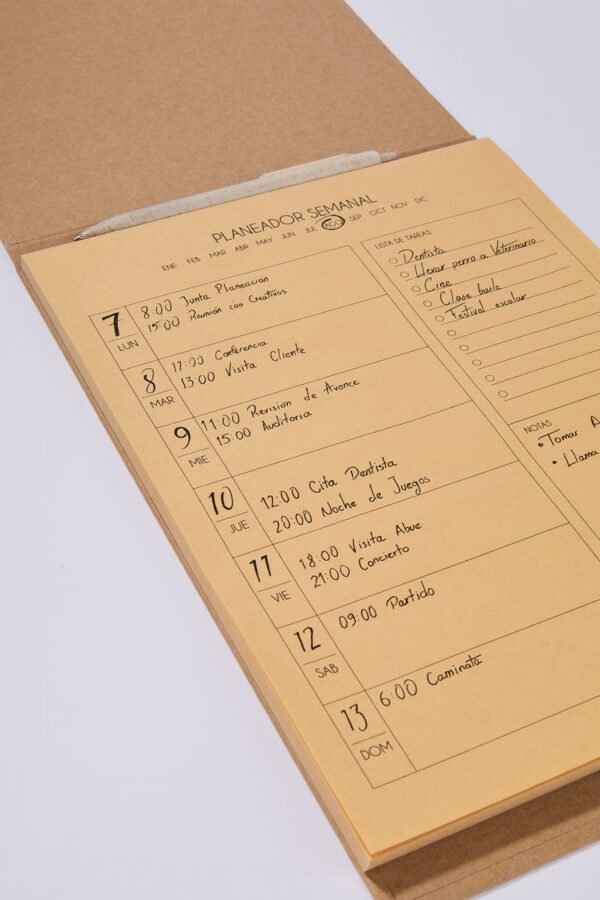 PLANEADOR SEMANAL
ENE FEB MAR ABR MAY JUN JUL AGO SEP OCT NOV DIC
7
LUN
8:00 Junta Planeacion
15:00 Reunión con Creativos
8
MAR
11:00 Conferencia
13:00 Visita Cliente
9
MIE
11:00 Revisión de Avance
15:00 Auditoria
10
JUE
12:00 Cita Dentista
20:00 Noche de Juegos
11
VIE
18:00 Visita Abue
21:00 Concierto
12
SAB
09:00 Partido
13
DOM
6:00 Caminata
LISTA DE TAREAS
Dentista
Llevar perro a Veterinario
Cine
Clase baile
Festival escolar
NOTAS
• Tomar A
• Llama